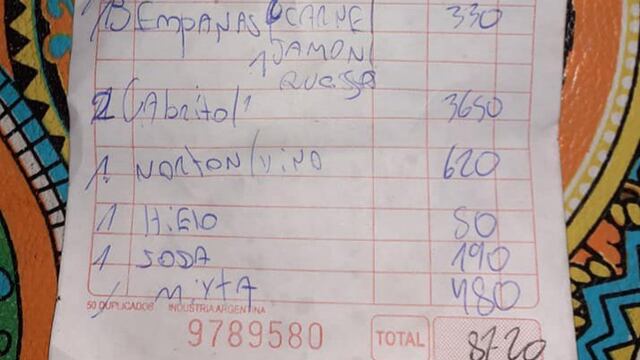 13 EMPANAS CARNE 330
1 JAMON
QUESSO
2 CABrito 3650
1 NORTON/VINO 620
1 HiElO 50
1 SODA 190
1 MiXTA 480
50 DUPLICADOS INDUSTRIA ARGENTINA
9789580 TOTAL 8720